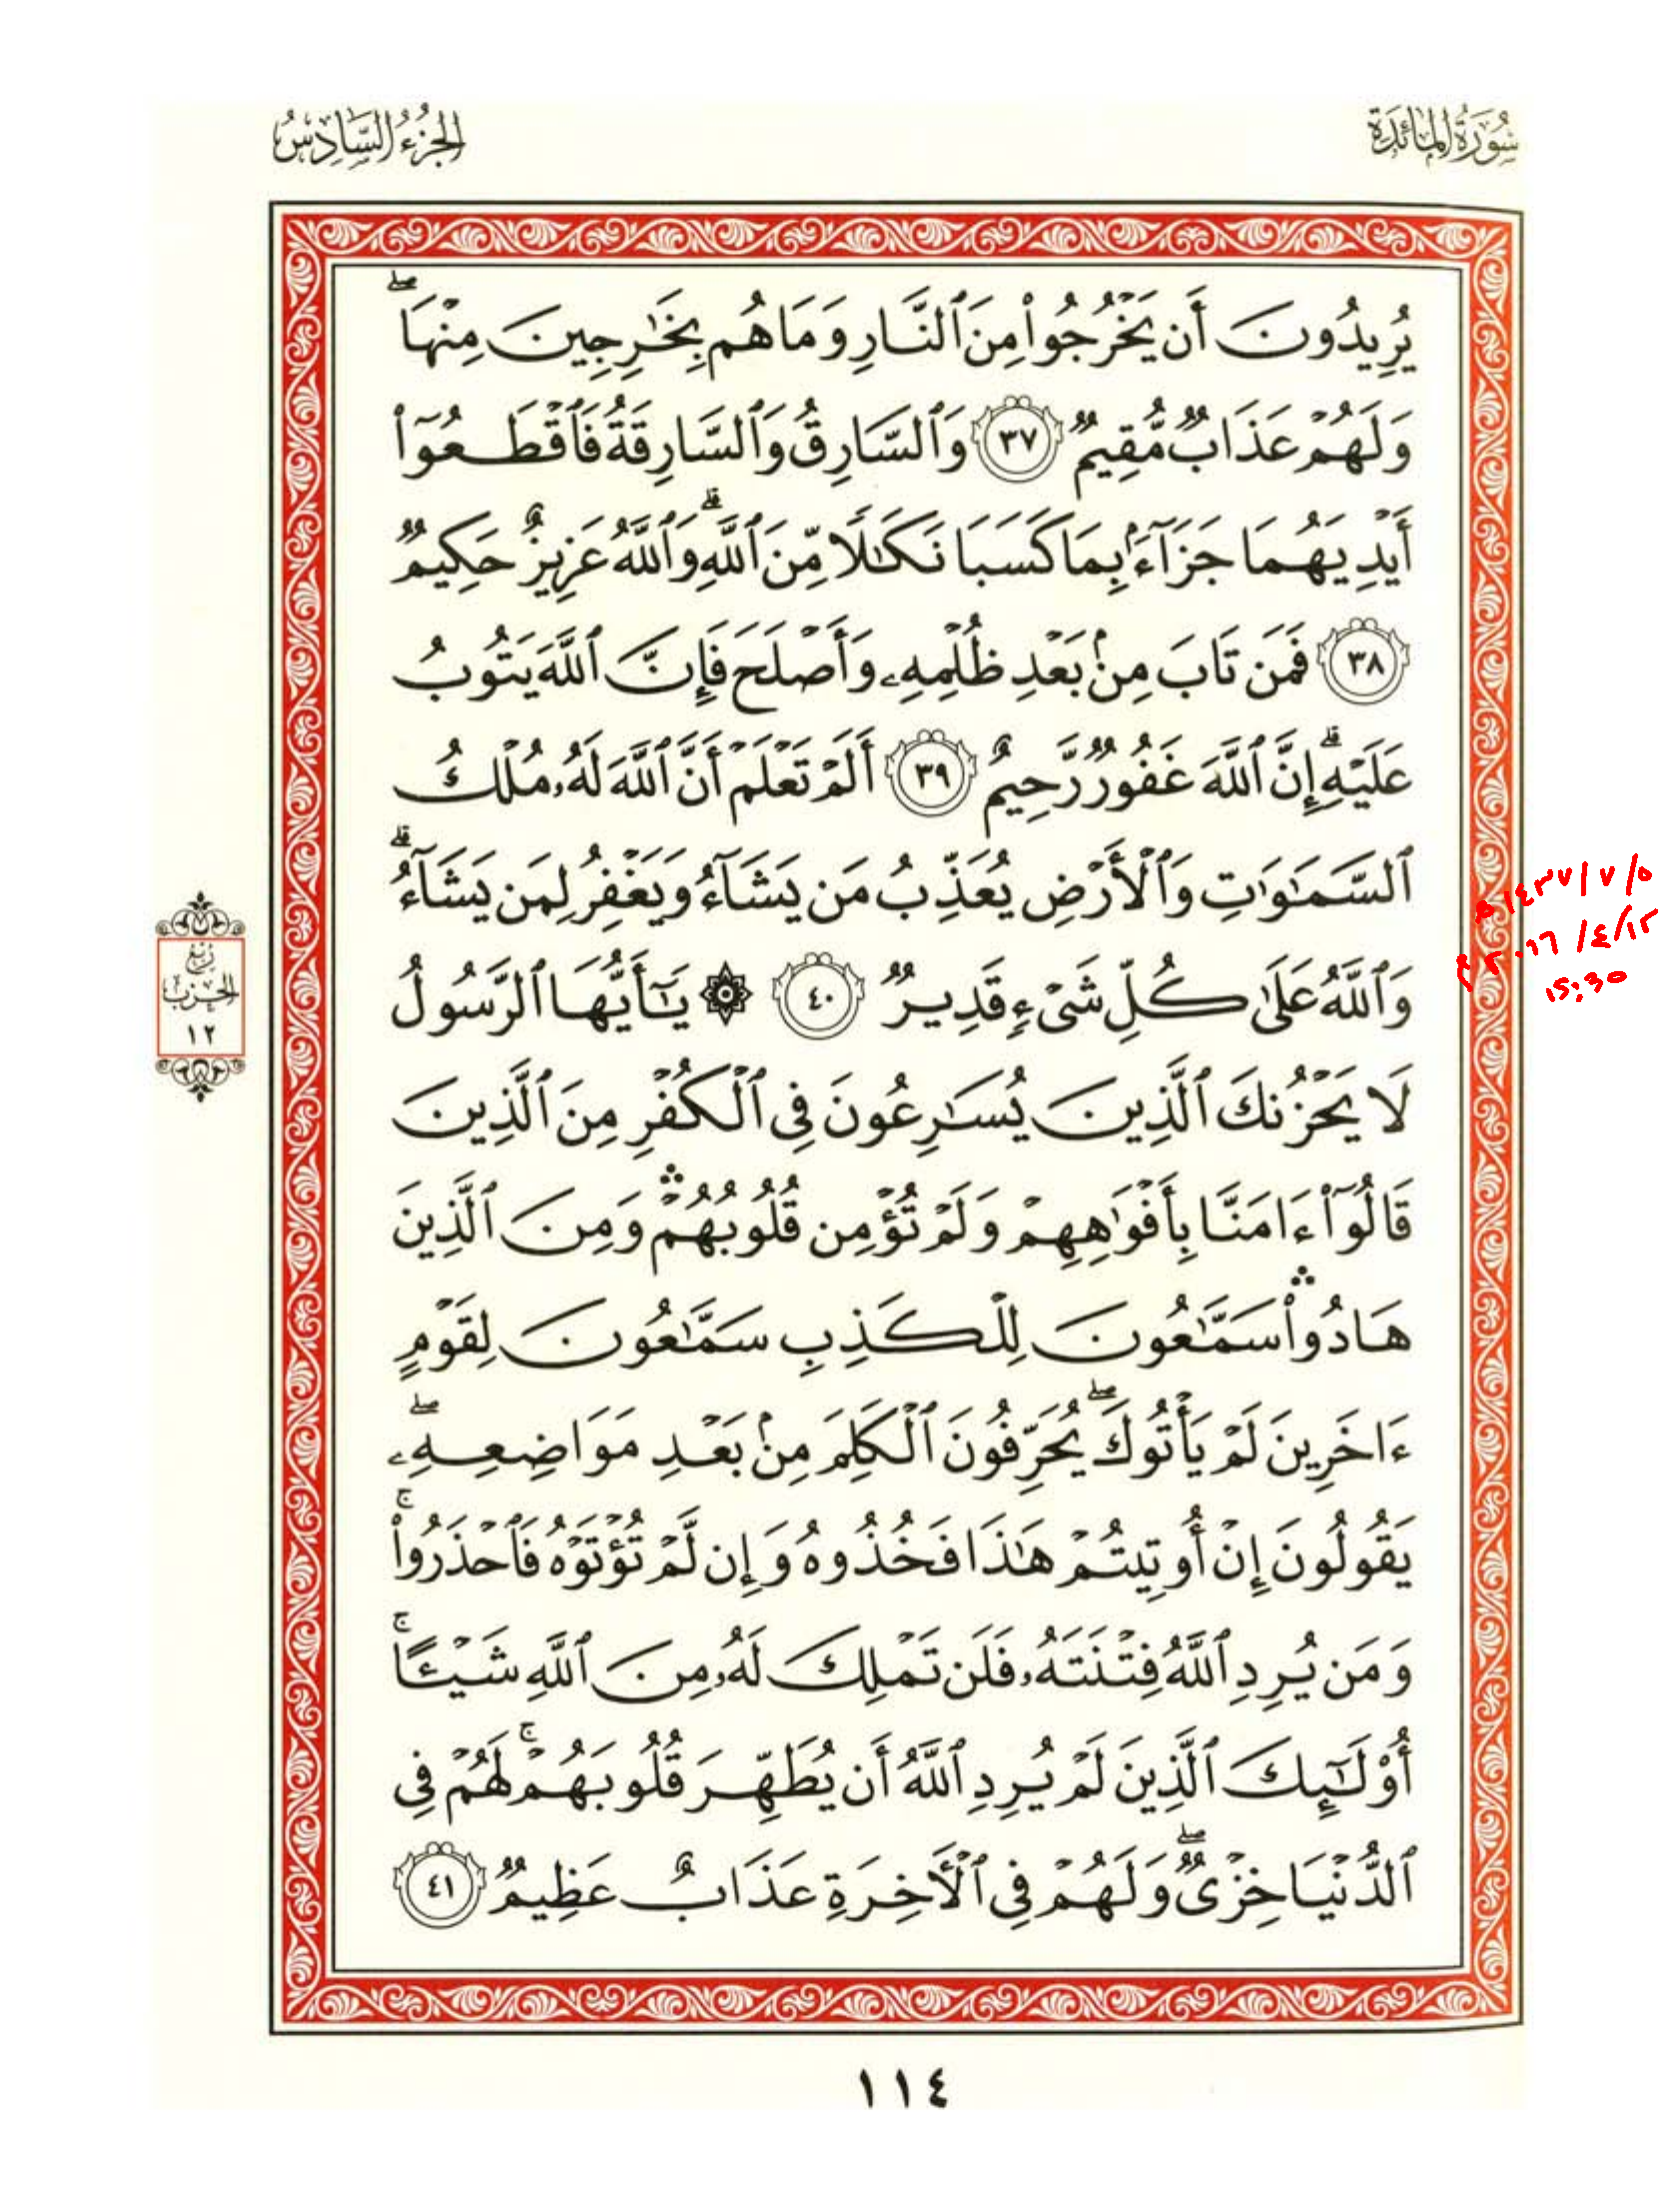 سُورَةُ المَائدة
الجزءُ السَّادِسُ
يُرِيدُونَ أَن يَخْرُجُوا۟ مِنَ ٱلنَّارِ وَمَا هُم بِخَـٰرِجِينَ مِنْهَا ۖ
وَلَهُمْ عَذَابٌ مُّقِيمٌ ٣٧ وَٱلسَّارِقُ وَٱلسَّارِقَةُ فَٱقْطَعُوٓا۟
أَيْدِيَهُمَا جَزَآءًۢ بِمَا كَسَبَا نَكَـٰلًا مِّنَ ٱللَّهِ ۗ وَٱللَّهُ عَزِيزٌ حَكِيمٌ
٣٨ فَمَن تَابَ مِنۢ بَعْدِ ظُلْمِهِۦ وَأَصْلَحَ فَإِنَّ ٱللَّهَ يَتُوبُ
عَلَيْهِ ۗ إِنَّ ٱللَّهَ غَفُورٌ رَّحِيمٌ ٣٩ أَلَمْ تَعْلَمْ أَنَّ ٱللَّهَ لَهُۥ مُلْكُ
ٱلسَّمَـٰوَٰتِ وَٱلْأَرْضِ يُعَذِّبُ مَن يَشَآءُ وَيَغْفِرُ لِمَن يَشَآءُ ۗ
وَٱللَّهُ عَلَىٰ كُلِّ شَىْءٍ قَدِيرٌ ٤٠ ۞ يَـٰٓأَيُّهَا ٱلرَّسُولُ
لَا يَحْزُنكَ ٱلَّذِينَ يُسَـٰرِعُونَ فِى ٱلْكُفْرِ مِنَ ٱلَّذِينَ
قَالُوٓا۟ ءَامَنَّا بِأَفْوَٰهِهِمْ وَلَمْ تُؤْمِن قُلُوبُهُمْ ۛ وَمِنَ ٱلَّذِينَ
هَادُوا۟ ۛ سَمَّـٰعُونَ لِلْكَذِبِ سَمَّـٰعُونَ لِقَوْمٍ
ءَاخَرِينَ لَمْ يَأْتُوكَ ۖ يُحَرِّفُونَ ٱلْكَلِمَ مِنۢ بَعْدِ مَوَاضِعِهِۦ ۖ
يَقُولُونَ إِنْ أُوتِيتُمْ هَـٰذَا فَخُذُوهُ وَإِن لَّمْ تُؤْتَوْهُ فَٱحْذَرُوا۟ ۚ
وَمَن يُرِدِ ٱللَّهُ فِتْنَتَهُۥ فَلَن تَمْلِكَ لَهُۥ مِنَ ٱللَّهِ شَيْـًٔا ۚ
أُو۟لَـٰٓئِكَ ٱلَّذِينَ لَمْ يُرِدِ ٱللَّهُ أَن يُطَهِّرَ قُلُوبَهُمْ ۚ لَهُمْ فِى
ٱلدُّنْيَا خِزْىٌ ۖ وَلَهُمْ فِى ٱلْـَٔاخِرَةِ عَذَابٌ عَظِيمٌ ٤١
رُبْع
الحِزب
١٢
٥/٧/١٤٣٧ هـ
١٢/٤/٢٠١٦ م
15:30
١١٤